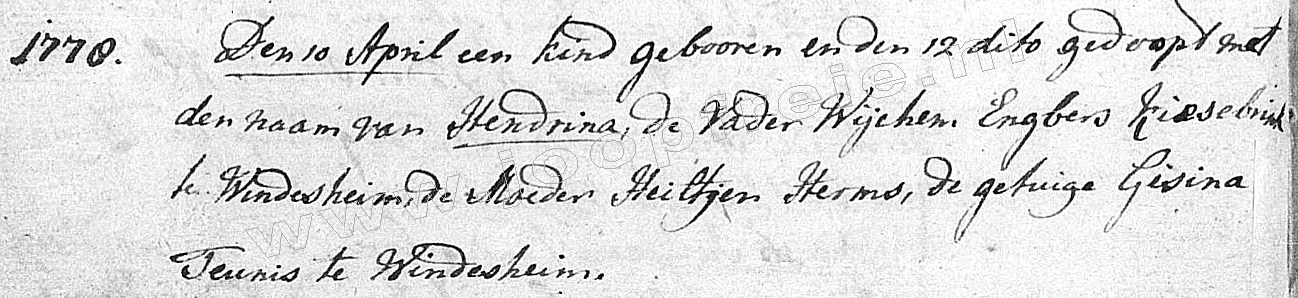 1778. Den 10 April een kind gebooren en den 12 dito gedoopt met
den naam van Hendrina, de Vader Wijchem Engbers Kiesebrink
te Windesheim, de Moeder Heiltjen Herms, de getuige Gisina
Teunis te Windesheim.